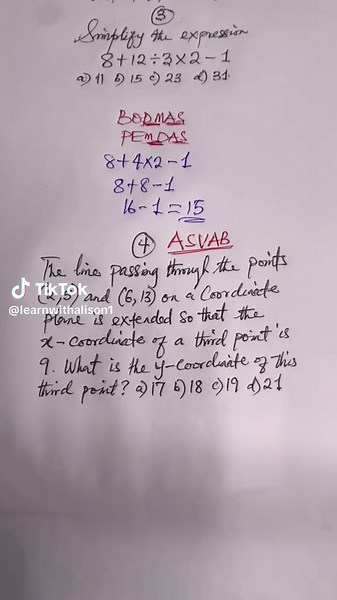 ③
Simplify the expression
8+12÷3×2-1
a) 11 b) 15 c) 23 d) 31
BODMAS
PEMDAS
8+4×2-1
8+8-1
16-1=15
④ ASVAB
The line passing through the points
(2,5) and (6,13) on a Coordinate
plane is extended so that the
x-coordinate of a third point is
9. What is the y-coordinate of this
third point? a) 17 b) 18 c) 19 d) 21
TikTok
@learnwithalison1